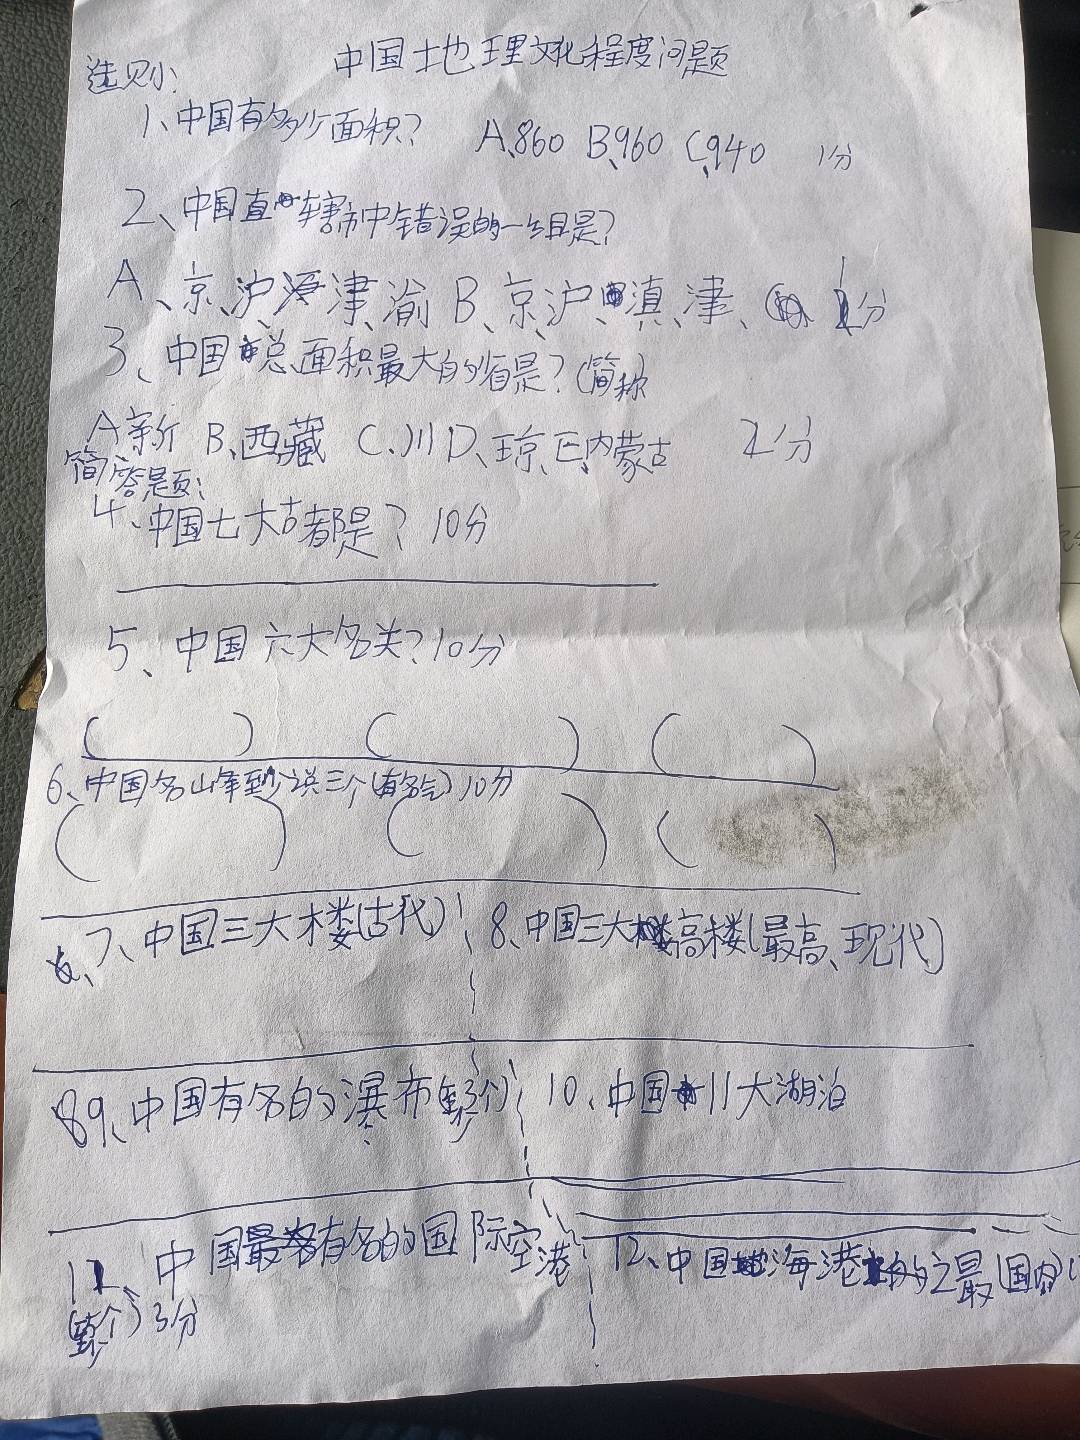 中国地理文化程度问题
选则:
1、中国有多少面积? A、860 B、960 C、940 1分
2、中国直辖市中错误的一组是?
A、京、沪、津、渝 B、京、沪、滇、津、 1分
3、中国总面积最大的省是?(简称
A新 B、西藏 C、川 D、琼、E、内蒙古 2分
简答题:
4、中国七大古都是? 10分
5、中国六大名关?10分
( ) ( ) ( )
6、中国名山 说三个(有名气) 10分
( ) ( ) ( )
7、中国三大楼(古代)
8、中国三大高楼(最高、现代)
9、中国有名的瀑布
10、中国11大湖泊
11、中国有名的国际空港
3分
12、中国海港之最(国内)